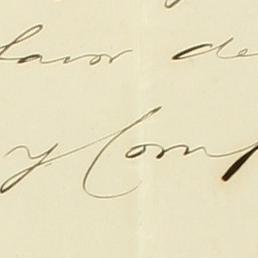 favor de
y Comp